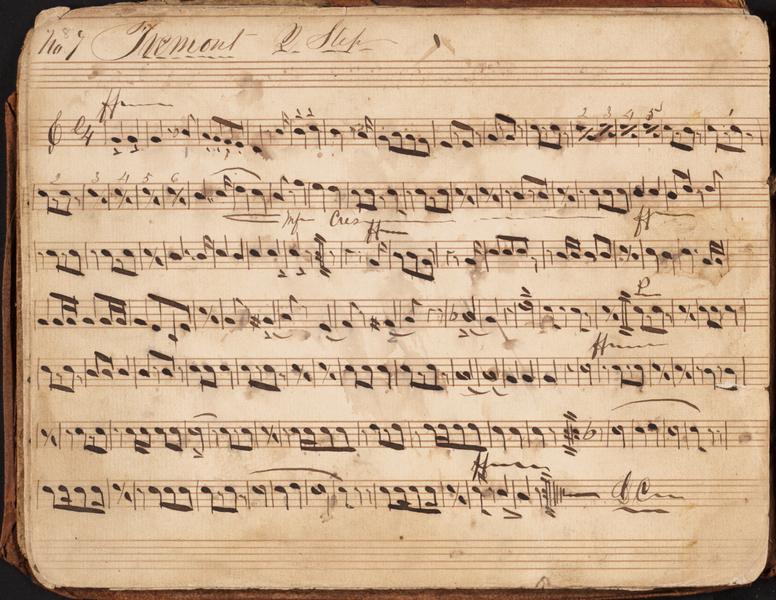 No 7 Tremont 2 Step
ff
2 3 4 5 1
2 3 4 5 6
mf Cres ff ff
P
ff
ff D C